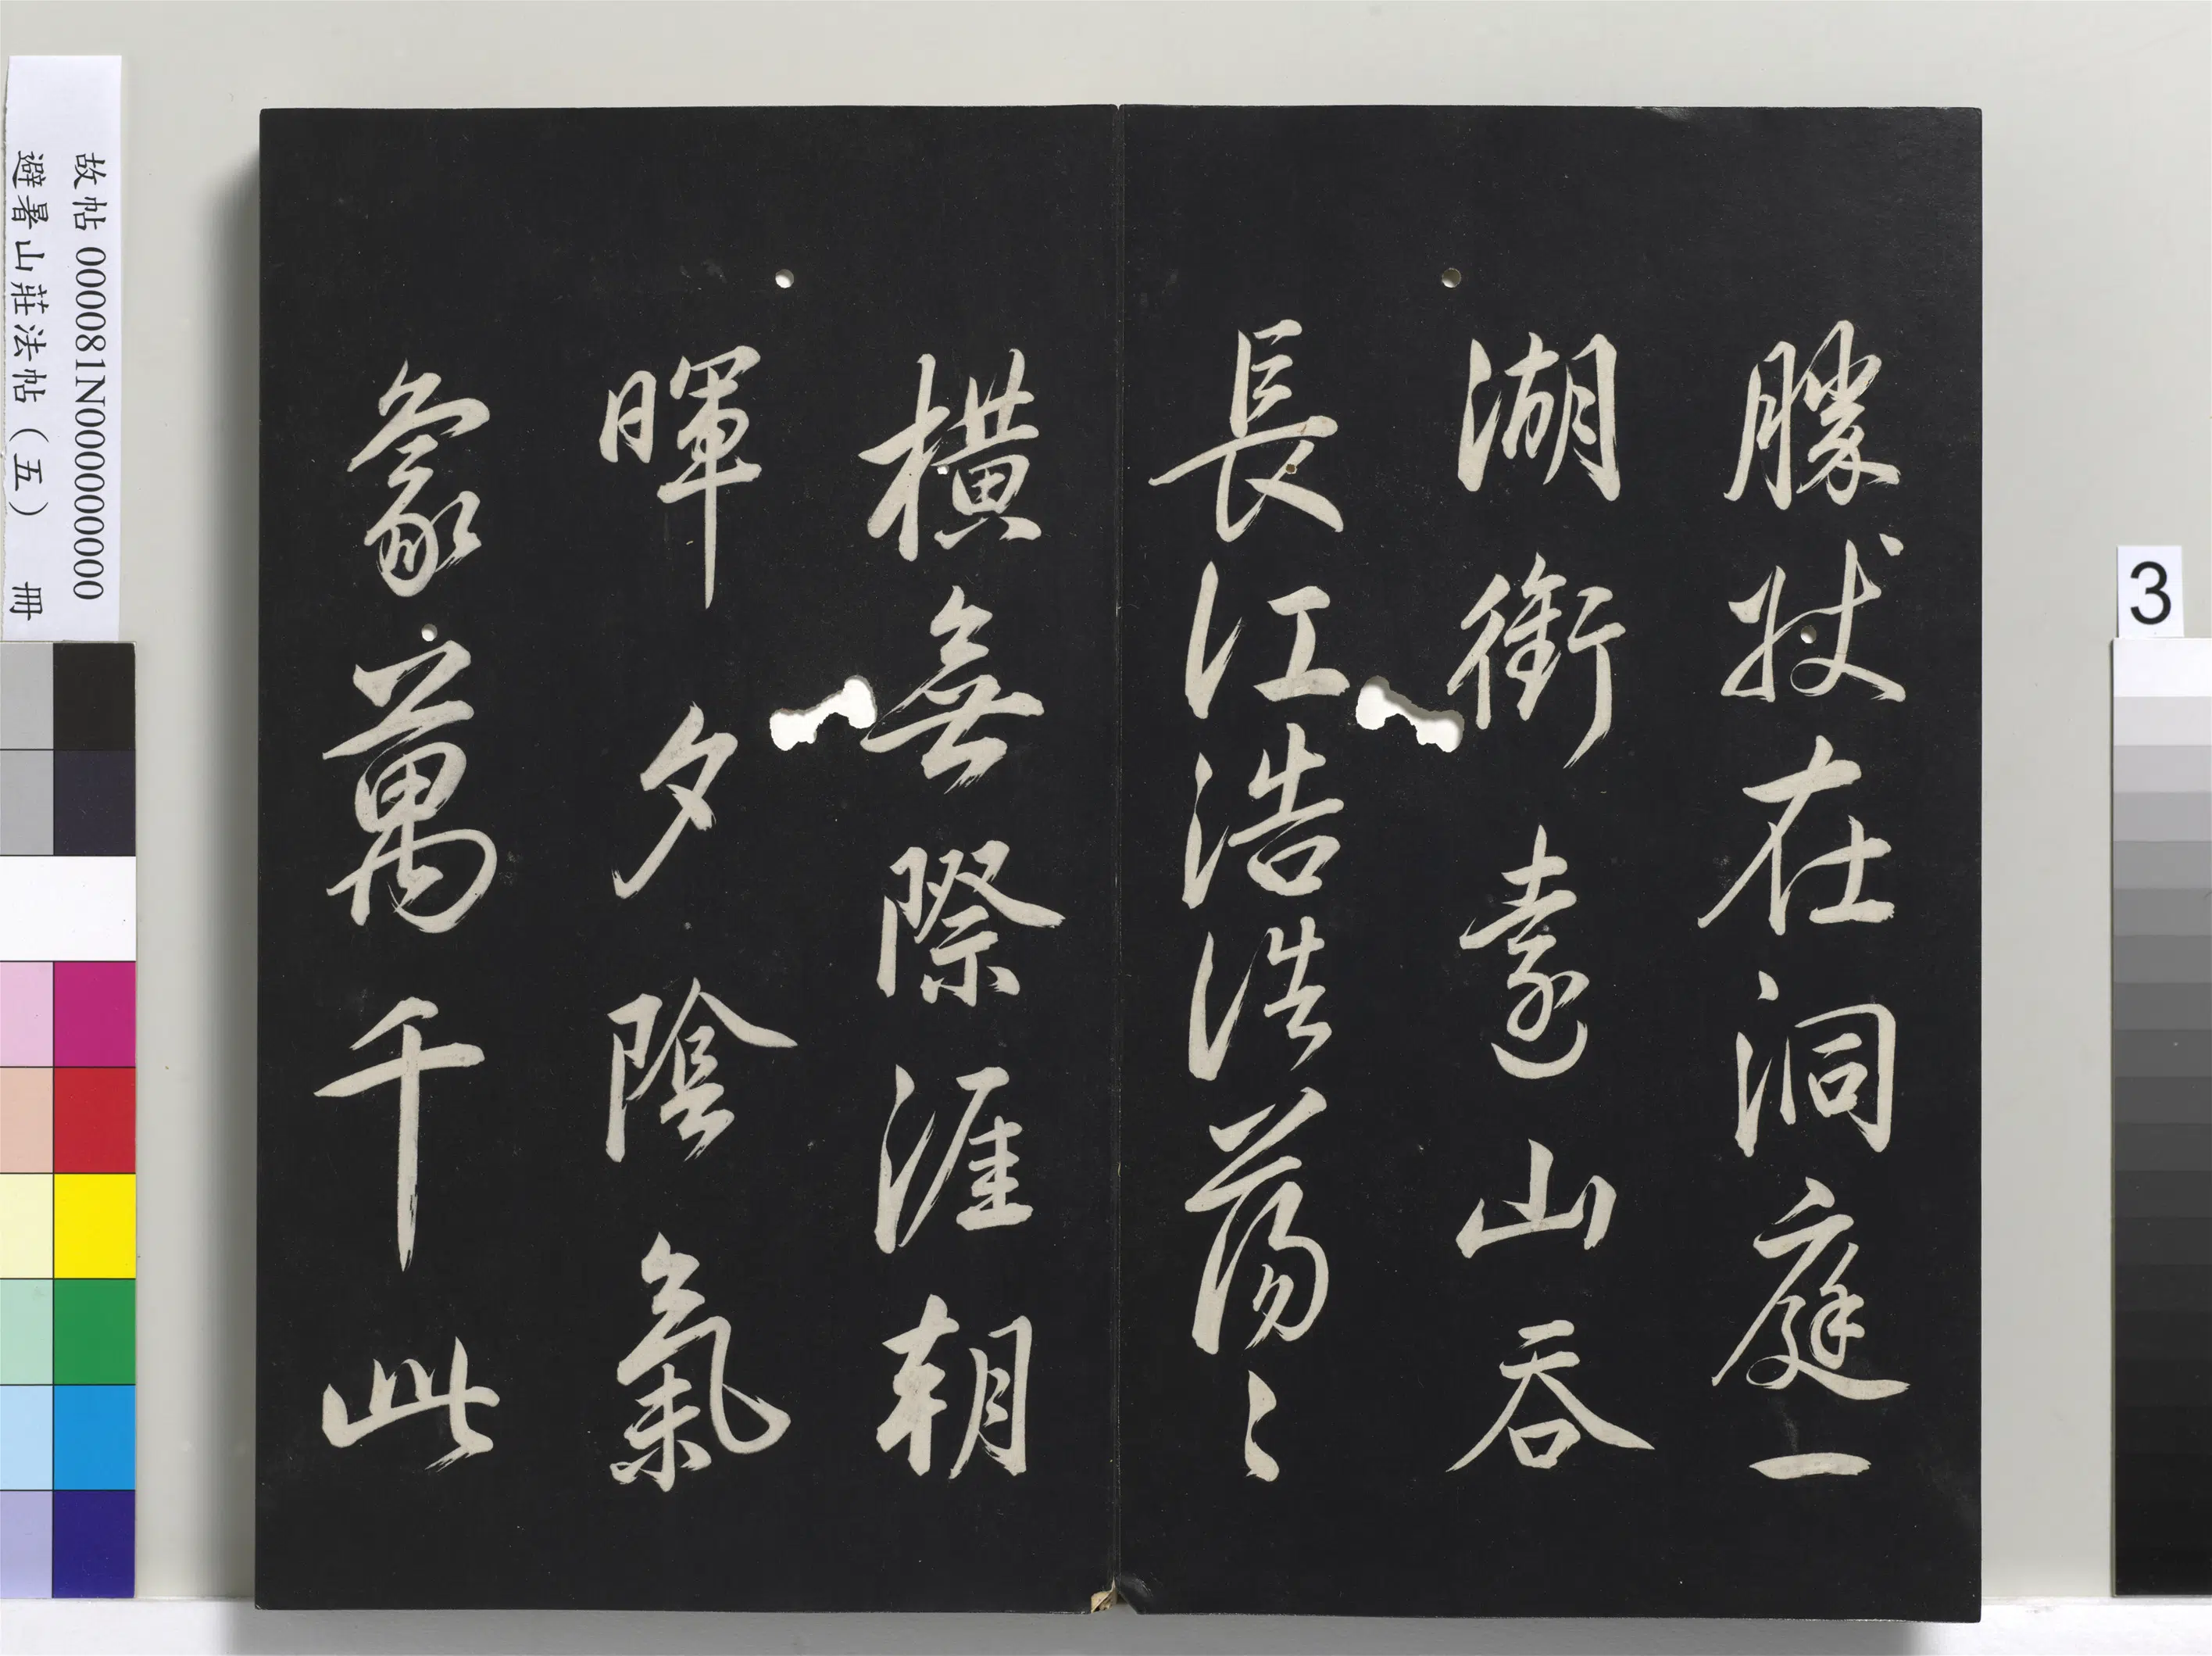 勝狀在洞庭一
湖銜遠山吞
長江浩浩蕩〻
橫無際涯朝
暉夕陰氣
象萬千此
故帖 000081N000000000
避暑山莊法帖（五） 冊
3